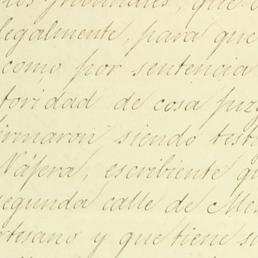 legalmente, para que
como por sentencia
toridad de cosa juzg
firmaron siendo testi
Náfera, escribiente q
segunda calle de Me
rtesano y que tiene s